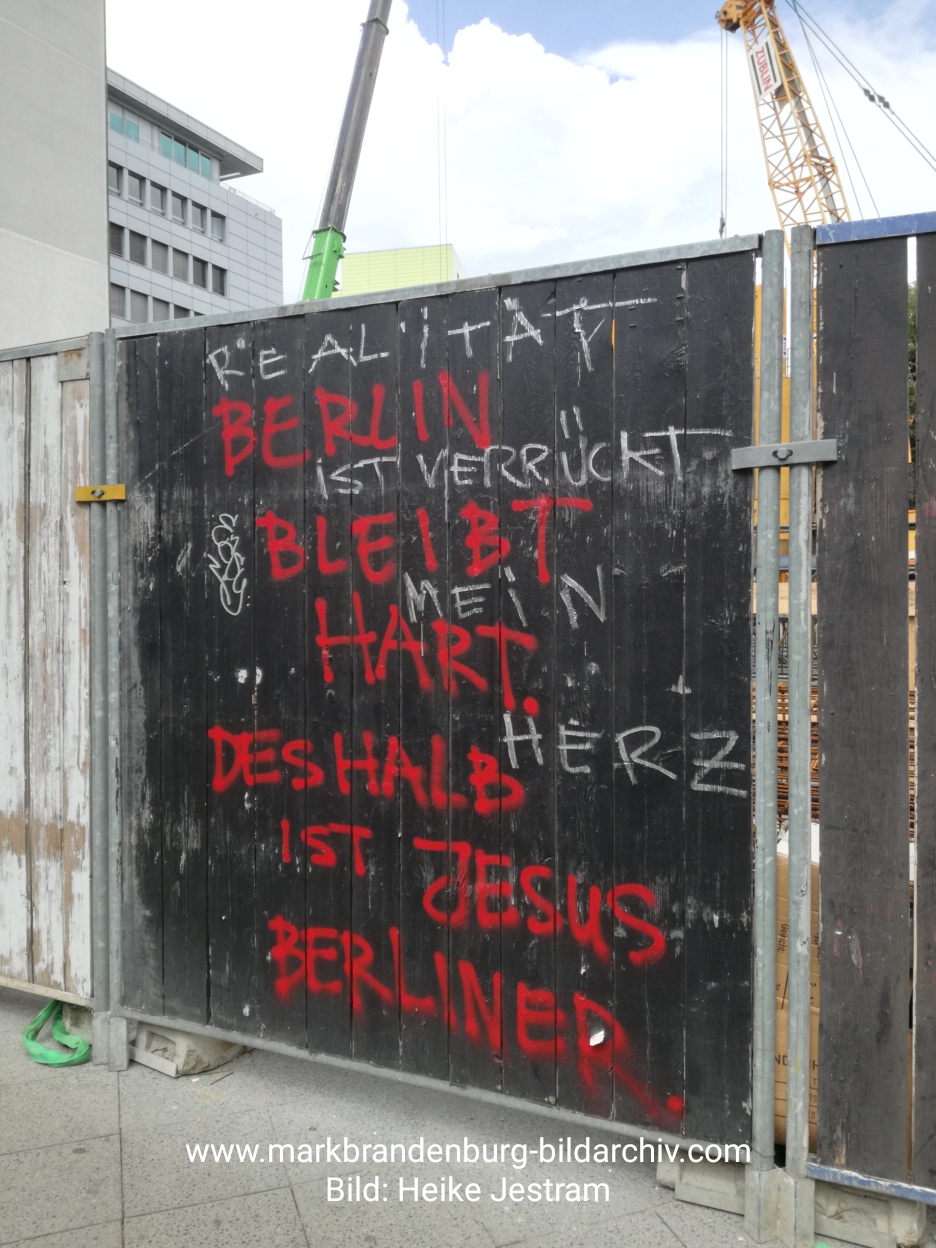 ZÜBLIN
REALITÄT
BERLIN
IST VERRÜCKT
BLEIBT
MEIN
HART.
HERZ
DESHALB
IST JESUS
BERLINER.
www.markbrandenburg-bildarchiv.com
Bild: Heike Jestram